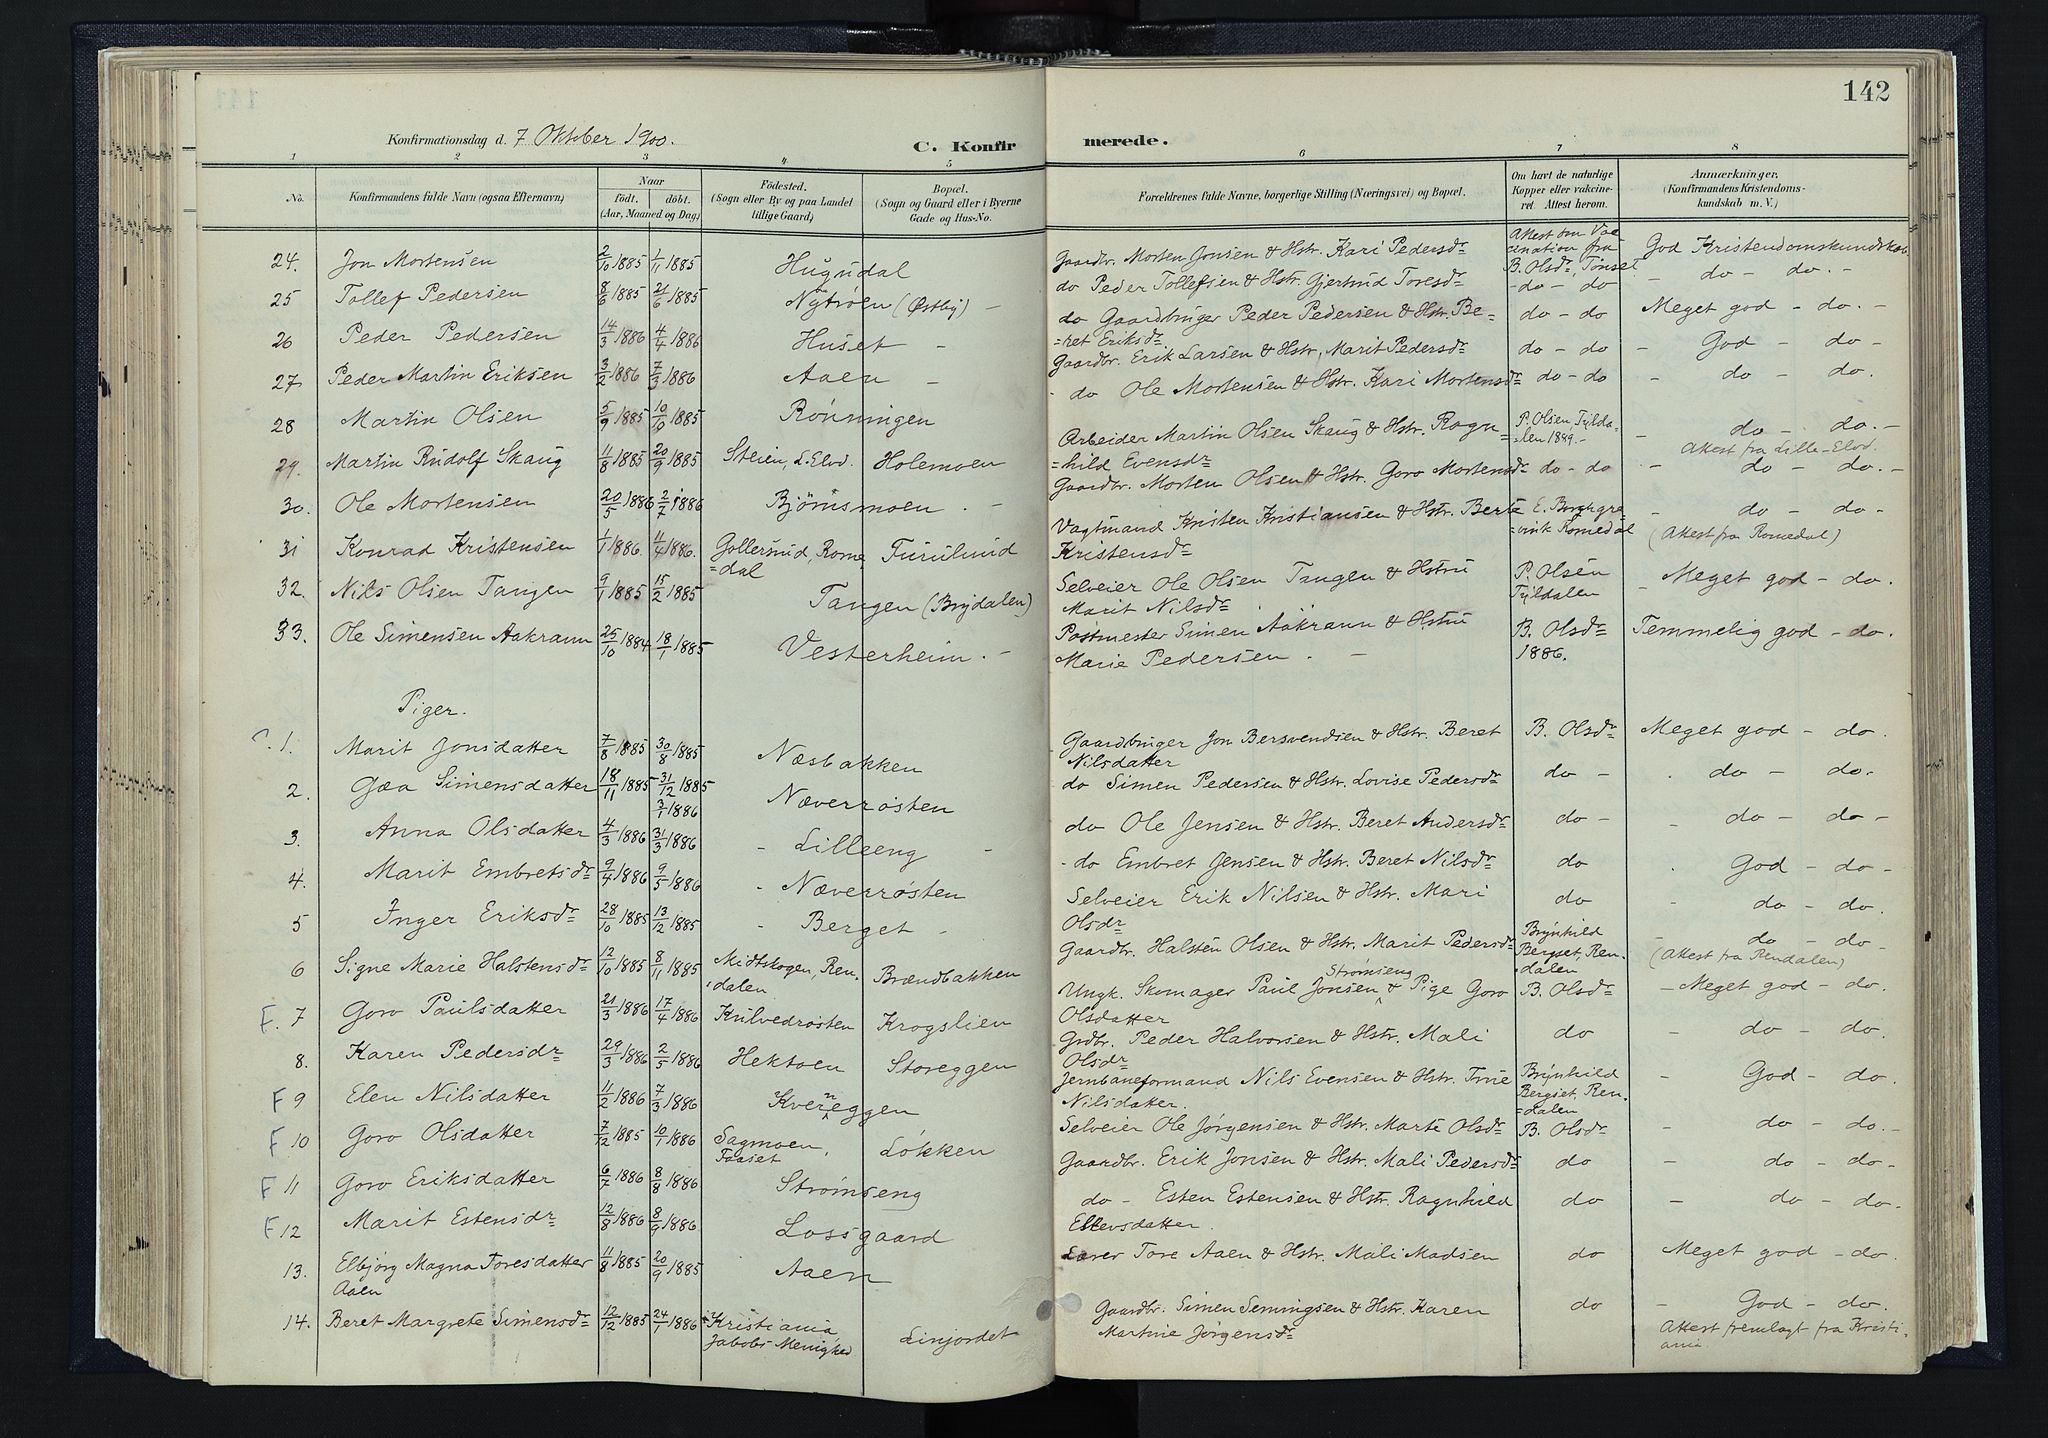 142
Konfirmationsdag d. 7 Oktober 1900.
C. Konfirmerede.
1 2 3 4 5 6 7 8
No. Konfirmandens fulde Navn (ogsaa Efternavn) Naar født. døbt. (Aar, Maaned og Dag) Fødested. (Sogn eller By og paa Landet tillige Gaard) Bopæl. (Sogn og Gaard eller i Byerne Gade og Hus-No. Forældrenes fulde Navne, borgerlige Stilling (Næringsvei) og Bopæl. Om havt de naturlige Kopper eller vakcineret. Attest herom. Anmærkninger. (Konfirmandens Kristendomskundskab m. V.)
24. Jon Mortensen 2/10 1885 1/11 1885 Hugudal Gaardbr. Morten Jonsen & Hstr. Kari Pedersdr Attest om Vaccination fra B. Olsdr, Tønset God Kristendomskundskab.
25 Tollef Pedersen 8/6 1885 21/6 1885 Nytrøen (Østby) – do Peder Tollefsen & Hstr. Gjertrud Toresdr – do – do – do – do. –
26 Peder Pedersen 14/3 1886 4/4 1886 Huset – do Gaardbruger Peder Pedersen & Hstr. Be-
=ret Eriksdr do – do Meget god – do. –
27 Peder Martin Eriksen 3/2 1886 7/3 1886 Aaen – Gaardbr. Erik Larsen & Hstr. Marit Pedersdr do – do – God – do –
28 Martin Olsen 5/9 1885 10/10 1885 Rönningen - do Ole Mortensen & Hstr. Kari Mortensdr do – do – do – do.
29. Martin Rudolf Skaug 11/8 1885 20/9 1885 Steien, L. Elvd. Holemoen Arbeider Martin Olsen Skaug & Hstr. Ragn=
=hild Evensdr P. Olsen, Tylda-
=len 1889. – – do – do. –
Attest fra Lille-Elvd.
30. Ole Mortensen 20/5 1886 2/7 1886 Bjørnsmoen. – Gaardbr. Morten Olsen & Hstr. Goro Mortensdr do – do – do – do. –
31 Konrad Kristensen 1/1 1886. 11/4 1886. Gollerud, Rome
=dal Furulund Vagtmand Kristen Kristiansen & Hstr. Berte
Kristensdr E. Borchgre=
=vink Romedal – do – do –
(Attest fra Romedal)
32. Nils Olsen Tangen 9/1 1885 15/2 1885 Tangen (Brydalen) Selveier Ole Olsen Tangen & Hstru
Marit Nilsdr P. Olsen
Tyldalen – Meget god – do.
33. Ole Simensen Aakrann 25/10 1884 18/1 1885 Vesterheim. – Postmester Simen Aakrann & Hstru
Marie Pedersen. – B. Olsdr
1886. Temmelig god – do.
Piger.
1. Marit Jonsdatter 7/8 1885 30/8 1885 Næsbakken Gaardbruger Jon Bersvendsen & Hstr. Beret
Nilsdatter B. Olsdr Meget god – do.
2. Gæa Simensdatter 18/11 1885 31/12 1885
3/1 1886 Næverrøsten do Simen Pedersen & Hstr. Lovise Pedersdr do – . do – do.
3. Anna Olsdatter 4/3 1886 31/3 1886 - Lilleeng – do Ole Jensen & Hstr. Beret Andersdr do – – do – do –
4. Marit Embretsdr 9/4 1886 9/5 1886 - Næverrøsten - do Embret Jensen & Hstr. Beret Nilsdr do . God – do –
5 Inger Eriksdr 28/10 1885 13/12 1885 - Berget – Selveier Erik Nilsen & Hstr. Mari
Olsdr do – do – do.
6 Signe Marie Halstensdr 12/10 1885 8/11 1885 Midtskogen, Ren-
dalen Brændbakken Gaardbr. Halsten Olsen & Hstr. Marit Pedersdr Brynhild
Bergset, Ren-
dalen – do – do –
(Attest fra Rendalen)
F. 7 Goro Paulsdatter 21/3 1886 17/4 1886 Kulvedrøsten Krogslien Ungk. Skomager Paul Jonsen Strømseng & Pige Goro
Olsdatter B. Olsdr – Meget god – do.
8. Karen Pedersdr 29/3 1886 2/5 1886 Hektoen Storeggen Grdbr. Peder Halvorsen & Hstr. Mali
Olsdr do – do – do.
F 9 Elen Nilsdatter 11/2 1886 7/3 1886 Kverneggen Jernbaneformand Nils Evensen & Hstr. Trine
Nilsdatter. Brynhild
Bergset, Ren-
=dalen – God – do.
F 10 Goro Olsdatter 7/12 1885 10/1 1886 Sagmoen,
Faaset Løkken Selveier Ole Jørgensen & Hstr. Marte Olsdr B. Olsdr – do – do. –
F 11 Goro Eriksdatter 6/7 1886 8/8 1886 Strømseng Gaardbr. Erik Jonsen & Hstr. Mali Pedersdr do – do – do –
F 12 Marit Estensdr 12/8 1886 8/9 1886 Lossgaard do – Esten Estensen & Hstr. Ragnhild
Estensdatter. do – do – do.
13. Elbjørg Magna Toresdatter
Aaen 11/8 1885 20/9 1885 Aaen Lærer Tore Aaen & Hstr. Mali Madsen do Meget god – do.
14. Beret Margrete Simensdr 12/12 1885 24/1 1886 Kristiania
Jakobs Menighed Linjordet Gaardbr. Simen Semingsen & Hstr. Karen
Martine Jørgensdr do – God – do.
Attest fremlagt fra Kristi-
ania.